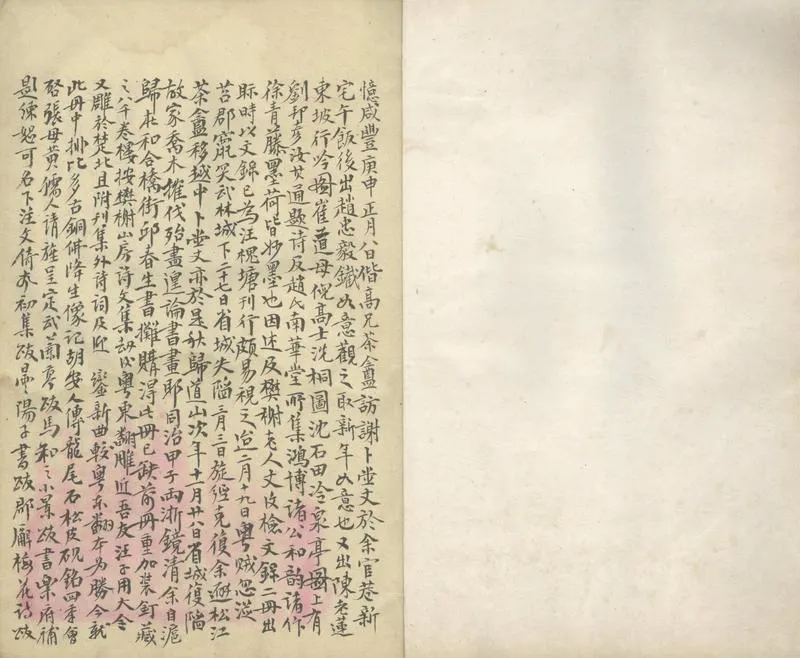 憶咸豐庚申正月八日偕高兄茶盦訪謝卜堂丈於余官巷新
宅午飯後出趙忠毅鐵如意觀之取新年如意也又出陳老蓮
東坡行吟圖崔道母倪高士洗桐圖沈石田冷泉亭圖上有
劉邦彥汝其通題詩及趙氏南華堂所集鴻博諸公和韵諸作
徐青藤墨荷皆妙墨也因述及樊榭老人文攷檢文錄二冊出
眎時以文錄已為汪槐塘刊行頗易視之迨二月十九日粵賊忽從
苕郡竄突武林城下二十七日省城失陷三月三日旋經克復余避松江
茶盦移越中卜堂丈亦於是秋歸道山次年十一月廿八日省城復陷
故家喬木摧伐殆盡遑論書畫耶同治甲子兩浙鏡清余自滬
歸杜和合橋街邱春生書攤購得此冊已缺前冊重加裝釘藏
之八千卷樓按樊榭山房詩文集刧後粵東翻雕近吾友汪子用大令
又雕於楚北且附刊集外詩詞及迎鑾新曲較粵東翻本為勝今就
此冊中排比多古銅佛降生像記胡安人傳龍尾石松皮硯銘四季會
啓張母黃孺人請旌呈定武蘭亭跋馬和之小景跋書樂府補
題練恕可名下注文倚夯初集跋帚陽子書跋郡廨梅花詩跋